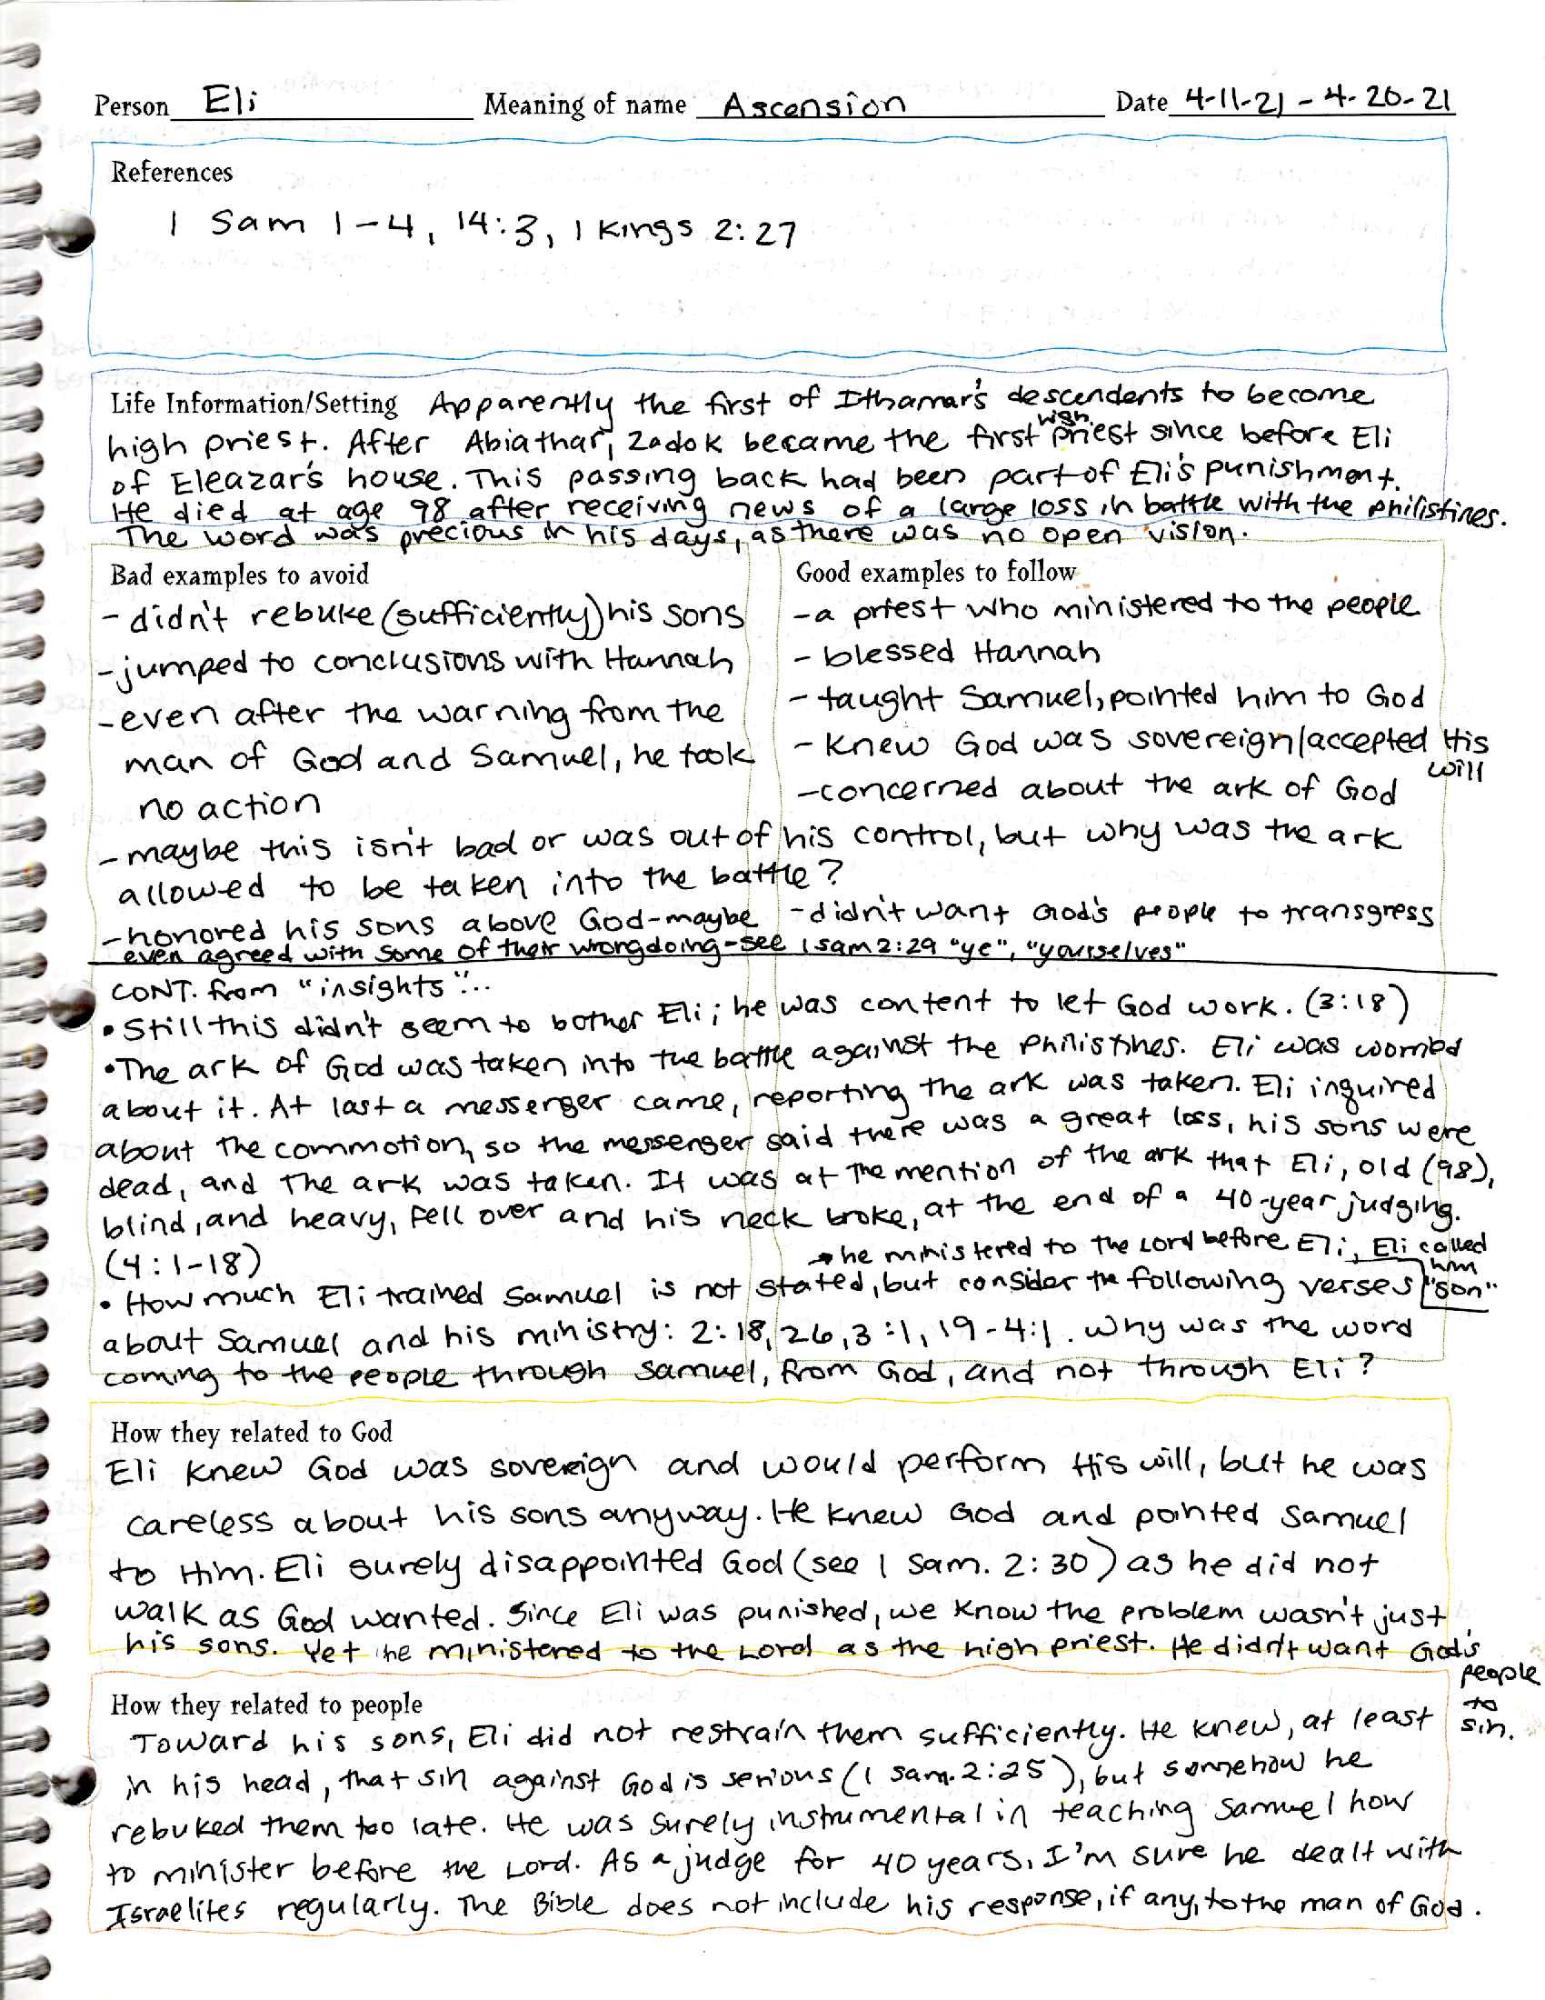 Person Eli Meaning of name Ascension Date 4-11-21 - 4-20-21
References
1 Sam 1-4, 14:3, 1 Kings 2:27
Life Information/Setting Apparently the first of Ithamar's descendents to become
high priest. After Abiathar, Zadok became the first high priest since before Eli
of Eleazar's house. This passing back had been part of Eli's punishment.
He died at age 98 after receiving news of a large loss in battle with the Philistines.
The word was precious in his days, as there was no open vision.
Bad examples to avoid
- didn't rebuke (sufficiently) his sons
- jumped to conclusions with Hannah
- even after the warning from the
man of God and Samuel, he took
no action
- maybe this isn't bad or was out of his control, but why was the ark
allowed to be taken into the battle?
- honored his sons above God-maybe
even agreed with some of their wrongdoing-see 1 Sam 2:29 "ye", "yourselves"
Good examples to follow
- a priest who ministered to the people
- blessed Hannah
- taught Samuel, pointed him to God
- knew God was sovereign/accepted His
will
- concerned about the ark of God
- didn't want God's people to transgress
CONT. from "insights"...
• Still this didn't seem to bother Eli; he was content to let God work. (3:18)
• The ark of God was taken into the battle against the Philistines. Eli was worried
about it. At last a messenger came, reporting the ark was taken. Eli inquired
about the commotion, so the messenger said there was a great loss, his sons were
dead, and the ark was taken. It was at the mention of the ark that Eli, old (98),
blind, and heavy, fell over and his neck broke, at the end of a 40-year judging.
(4:1-18)
→ he ministered to the Lord before Eli, Eli called
him
"son"
• How much Eli trained Samuel is not stated, but consider the following verses
about Samuel and his ministry: 2:18, 26, 3:1, 19-4:1. Why was the word
coming to the people through Samuel, from God, and not through Eli?
How they related to God
Eli knew God was sovereign and would perform His will, but he was
careless about his sons anyway. He knew God and pointed Samuel
to Him. Eli surely disappointed God (see 1 Sam. 2:30) as he did not
walk as God wanted. Since Eli was punished, we know the problem wasn't just
his sons. Yet he ministered to the Lord as the high priest. He didn't want God's
people
to
sin.
How they related to people
Toward his sons, Eli did not restrain them sufficiently. He knew, at least
in his head, that sin against God is serious (1 Sam. 2:25), but somehow he
rebuked them too late. He was surely instrumental in teaching Samuel how
to minister before the Lord. As a judge for 40 years, I'm sure he dealt with
Israelites regularly. The Bible does not include his response, if any, to the man of God.